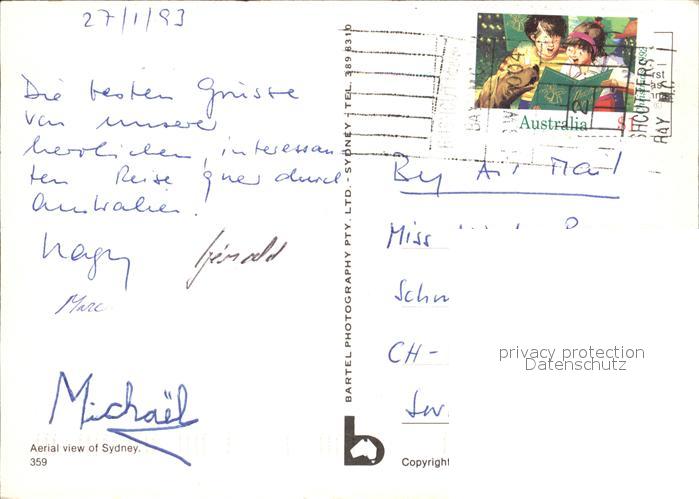 27/1/93
Die besten Grüsse
von unserer
herrlichen, interessan
ten Reise quer durch
Australien!
Gérald
Marc
Michaël
Aerial view of Sydney.
359
BARTEL PHOTOGRAPHY PTY. LTD. - SYDNEY - TEL. 389 8310
b
Australia
By Air Mail
Miss
CH-
Copyright
privacy protection
Datenschutz